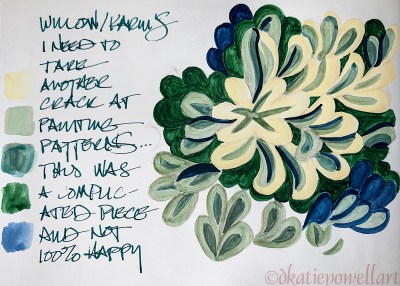 WILLOW/KARMA'S
I NEED TO
TAKE
ANOTHER
CRACK AT
PAINTING
PATTERNS...
THIS WAS
A COMPLIC-
ATED PIECE
AND NOT
100% HAPPY
©dkatiepowellart